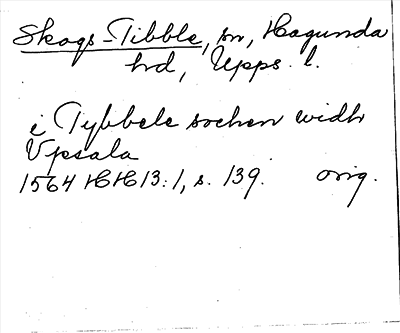 Skogs-Tibble, sn, Hagunda
hd, Upps. l.
i Tybbele sochen widh
Vpsala
1564 HH 13:1, s. 139. orig.